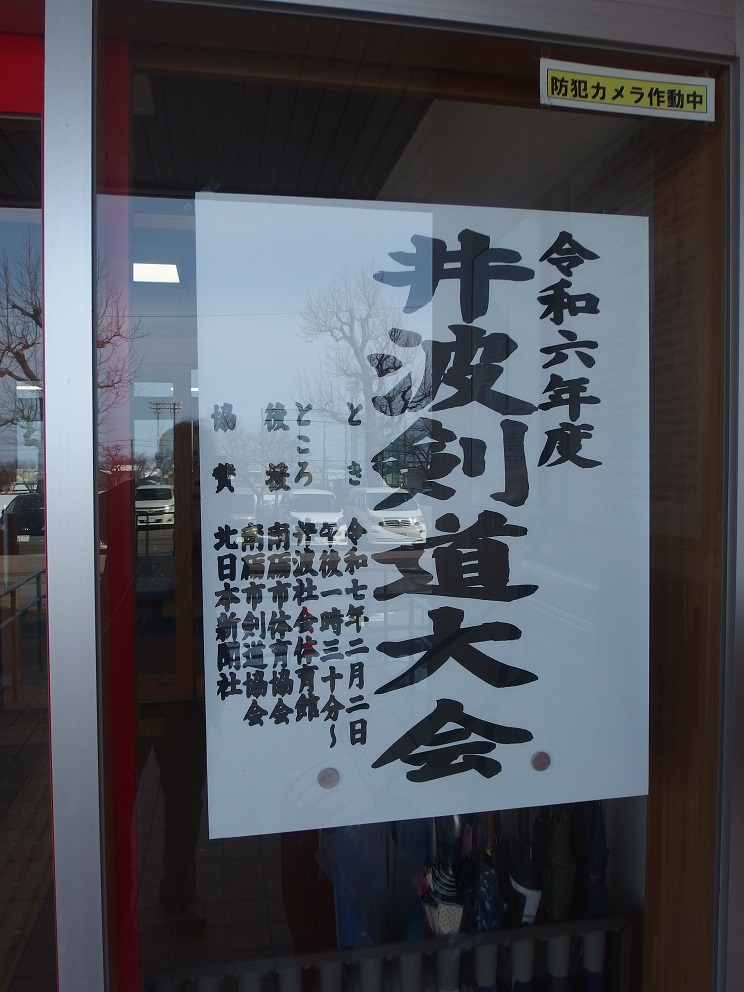 防犯カメラ作動中
令和六年度
井波剣道大会
とき 令和七年二月二日
午後一時三十分~
ところ 井波社会体育館
後援 南砺市体育協会
南砺市剣道協会
協賛 北日本新聞社